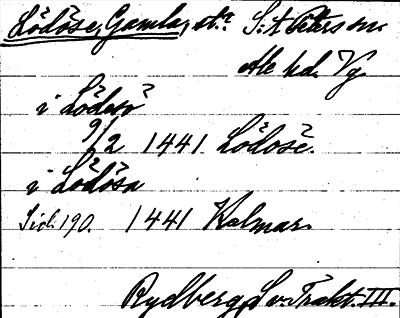 Lödöse, Gamla, st. S:t Peters sn.
Ale hd. Vg.
i Lödosö
9/2 1441 Lödosë.
i Lödösa
Sid. 190. 1441 Kalmar.
Rydberg, S v. Trakt. III.